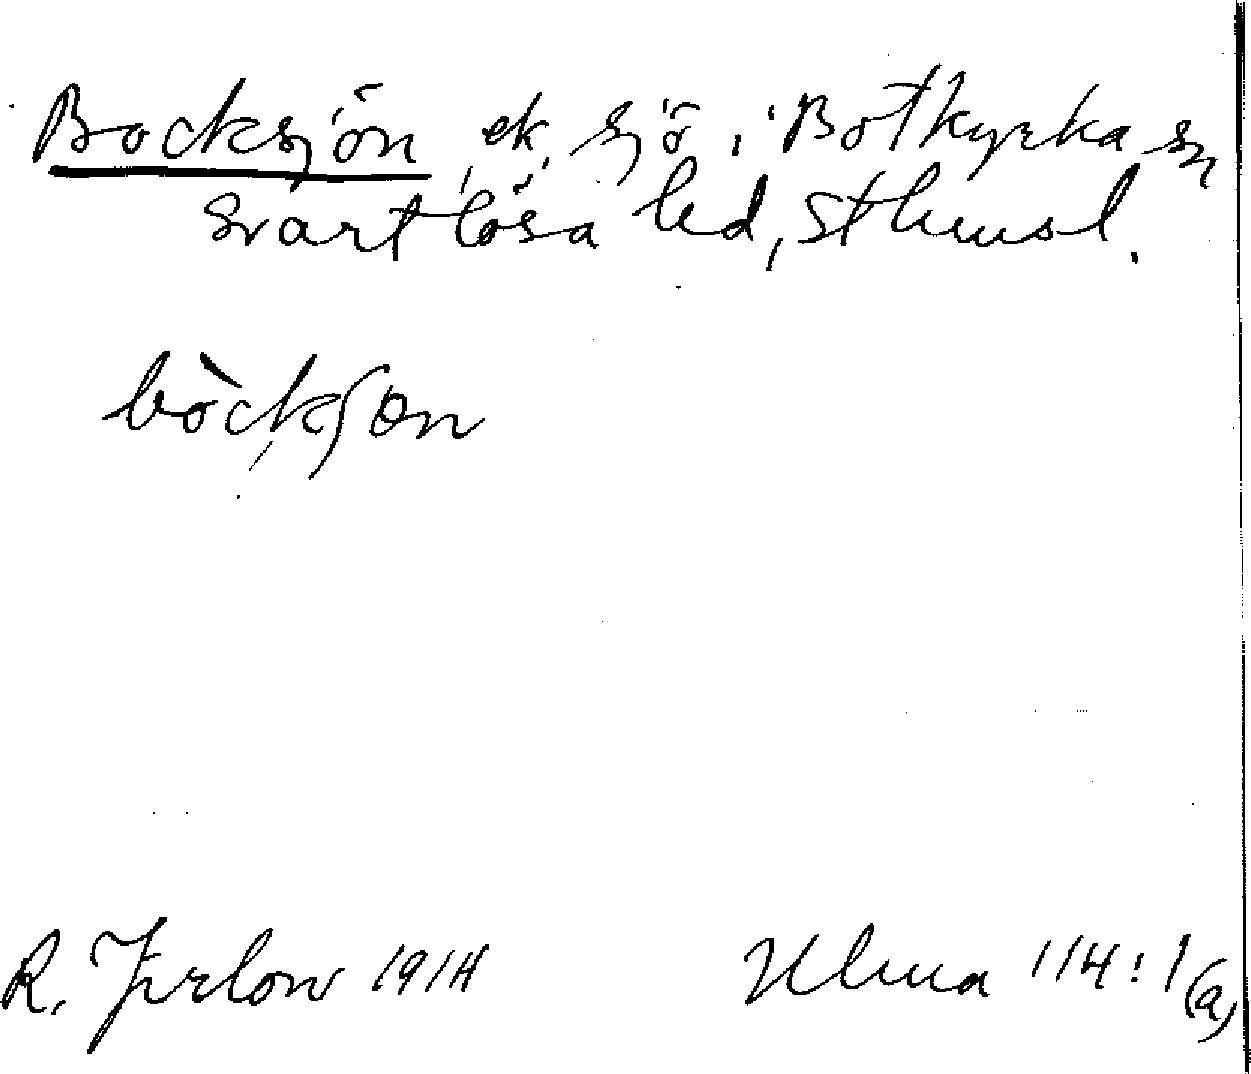 Bocksjön, ek, sjö i Botkyrka sn
Svartlösa hd, Sthmsl.
bòckʃøn
R. Jirlow 1914 Ulma 114:1(a)